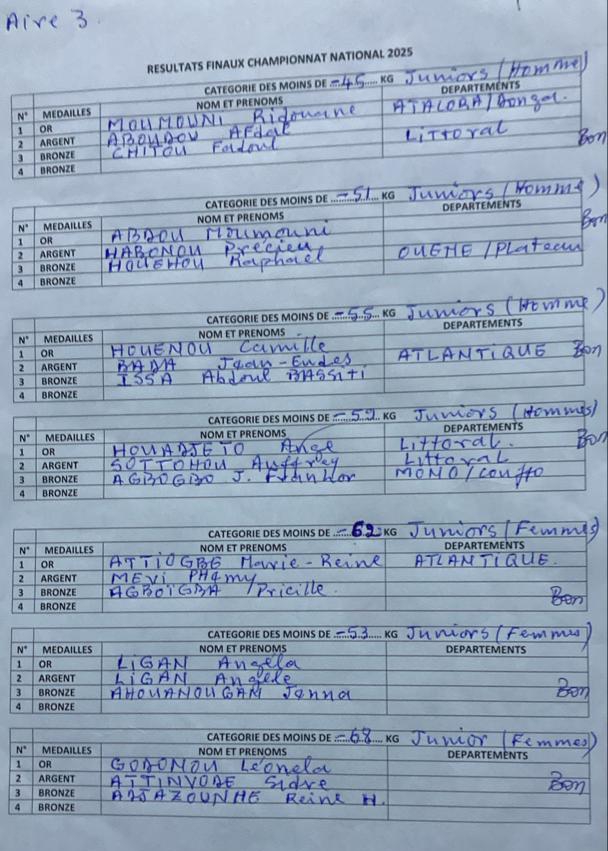 Aire 3.
RESULTATS FINAUX CHAMPIONNAT NATIONAL 2025
CATEGORIE DES MOINS DE -45 KG Juniors (Homme)
N° MEDAILLES NOM ET PRENOMS DEPARTEMENTS
1 OR MOUMOUNI Ridouane ATACORA/Donga.
2 ARGENT ABOUDOU AFdal LiTToral
3 BRONZE CHITOU Fadoul Bon
4 BRONZE
CATEGORIE DES MOINS DE -51 KG Juniors (Homme)
N° MEDAILLES NOM ET PRENOMS DEPARTEMENTS Bon
1 OR ABDOU Moumouni
2 ARGENT HABONOU Précieu
3 BRONZE HOUEHOU Raphaël OUEME /Plateau
4 BRONZE
CATEGORIE DES MOINS DE -55 KG Juniors (Homme)
N° MEDAILLES NOM ET PRENOMS DEPARTEMENTS
1 OR HOUENOU Camille
2 ARGENT BADA Jean-Eudes ATLANTIQUE Bon
3 BRONZE ISSA Abdoul BASSiTi
4 BRONZE
CATEGORIE DES MOINS DE -59 KG Juniors (Hommes)
N° MEDAILLES NOM ET PRENOMS DEPARTEMENTS
1 OR HOUADJETO Ange Littoral. Bon
2 ARGENT SOTTOHOU Auffrey Littoral
3 BRONZE AGBOGBO J. MONO/Couffo
4 BRONZE
CATEGORIE DES MOINS DE -62 KG Juniors (Femmes)
N° MEDAILLES NOM ET PRENOMS DEPARTEMENTS
1 OR ATTIOGBE Marie-Reine ATLANTIQUE.
2 ARGENT MEVI PHAmy
3 BRONZE AGBOÏGBA Pricille.
4 BRONZE Bon
CATEGORIE DES MOINS DE -53 KG Juniors (Femmes)
N° MEDAILLES NOM ET PRENOMS DEPARTEMENTS
1 OR LiGAN Angela
2 ARGENT LiGAN Angèle
3 BRONZE AHOUANOUGAN Janna Bon
4 BRONZE
CATEGORIE DES MOINS DE -68 KG Junior (Femmes)
N° MEDAILLES NOM ET PRENOMS DEPARTEMENTS
1 OR GODONOU Léonela
2 ARGENT ATTINVODE Sidre Bon
3 BRONZE ADJAZOUNHE Reine H.
4 BRONZE